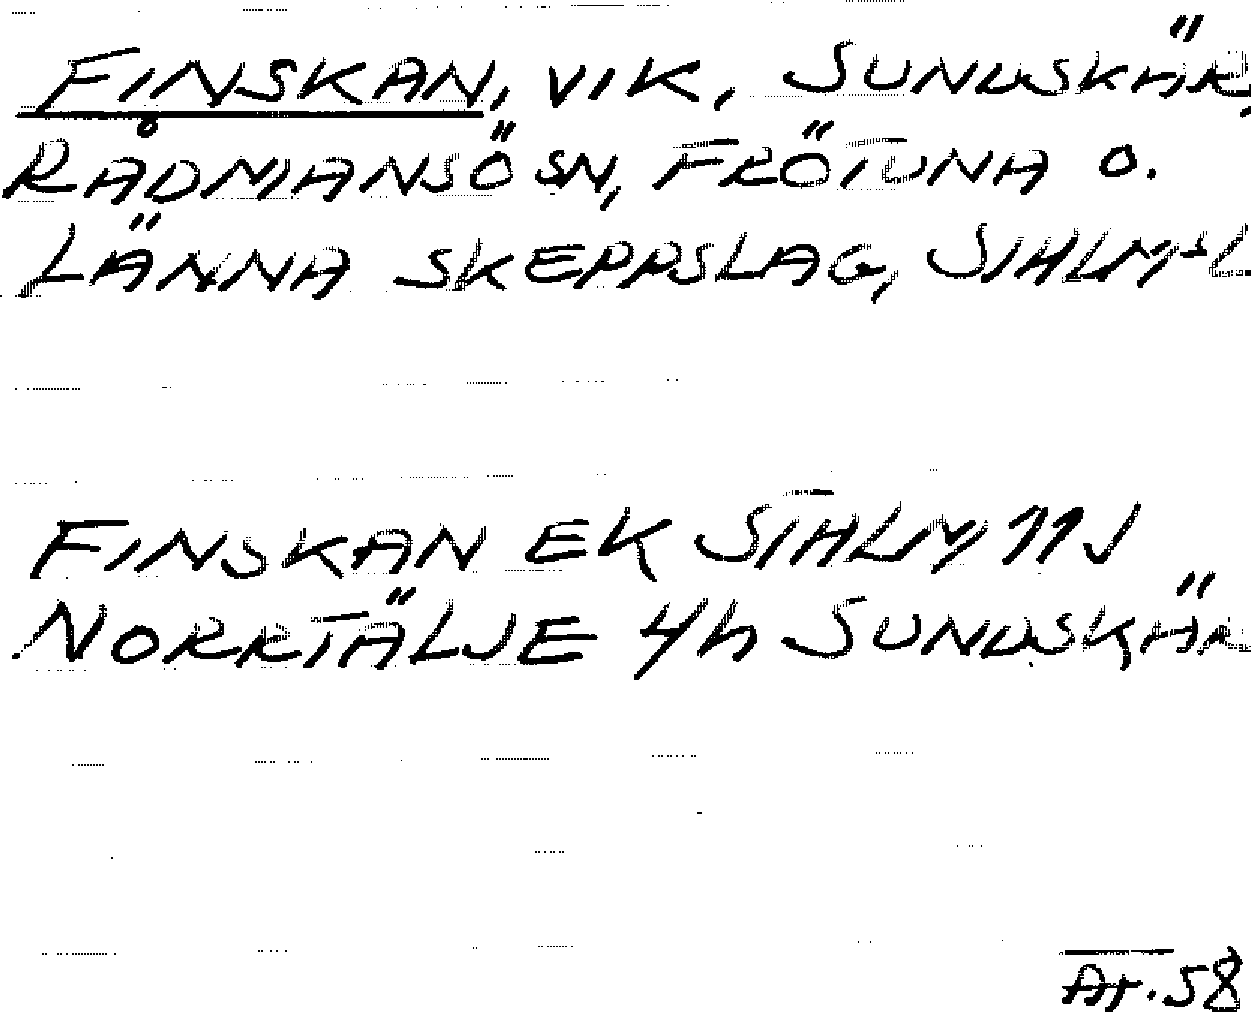 FINSKAN, VIK, SUNDSKÄR,
RÅDMANSÖ SN, FRÖTUNA O.
LÄNNA SKEPPSLAG, STHLMS L.
FINSKAN EK STHLM 11J
NORRTÄLJE 4h SUNDSKÄR
AT. 58